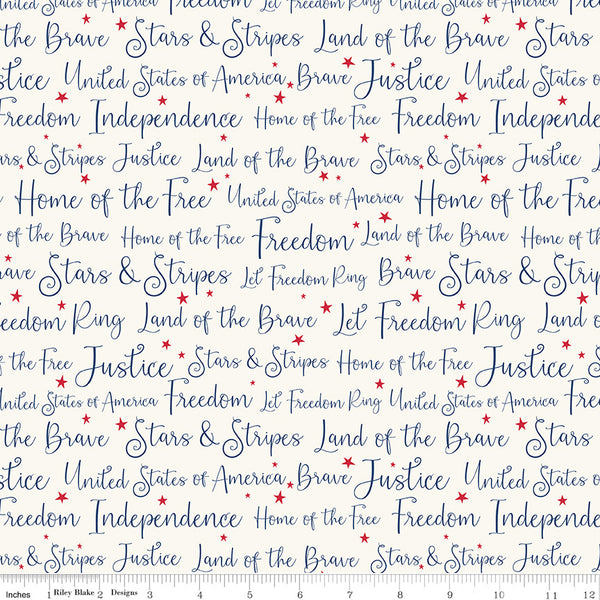 Freedom Let Freedom Ring United States of America Freedom
of the Brave Stars & Stripes Land of the Brave Stars
Justice United States of America Brave Justice United States of
Freedom Independence Home of the Free Freedom Independence
Stars & Stripes Justice Land of the Brave Stars & Stripes Justice Land
Home of the Free United States of America Home of the Free
of the Brave Home of the Free Freedom Land of the Brave Home of the
Brave Stars & Stripes Let Freedom Ring Brave Stars & Stripes
Freedom Ring Land of the Brave Let Freedom Ring Land of
of the Free Justice Stars & Stripes Home of the Free Justice Stars
United States of America Freedom Let Freedom Ring United States of America Freedom
the Brave Stars & Stripes Land of the Brave Stars
Justice United States of America Brave Justice United States of
Freedom Independence Home of the Free Freedom Independence
Stars & Stripes Justice Land of the Brave Stars & Stripes Justice Land
Inches 1 Riley Blake 2 Designs 3 4 5 6 7 8 9 10 11 12